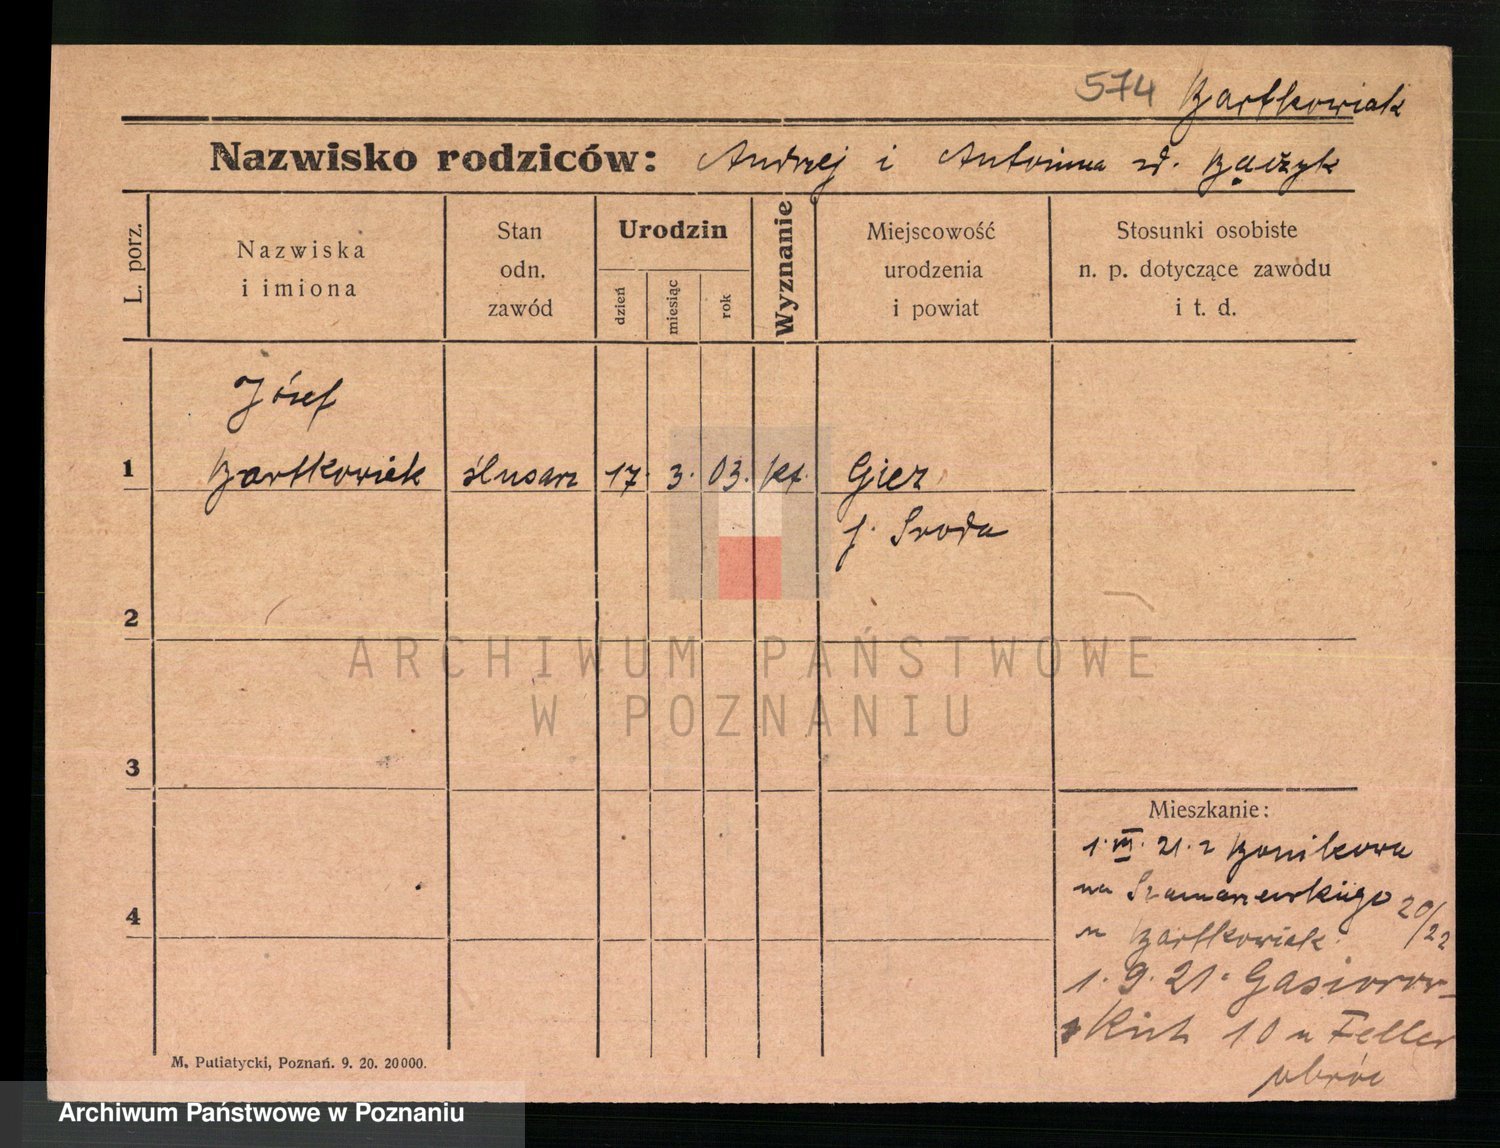 574 Bartkowiak
Nazwisko rodziców: Andrzej i Antonina zd. Bączyk
L. porz.
Nazwiska
i imiona
Stan
odn.
zawód
Urodzin
dzień
miesiąc
rok
Wyznanie
Miejscowość
urodzenia
i powiat
Stosunki osobiste
n. p. dotyczące zawodu
i t. d.
Józef
1 Bartkowiak ślusarz 17. 3. 03. kt. Giecz
p. Środa
2
ARCHIWUM PAŃSTWOWE
W POZNANIU
3
Mieszkanie:
1. VII. 21. z Bonikowa
na Szamarzewskiego 20/22
u Bartkowiak.
4
1. 9. 21. Gąsiorow-
skich 10 u Feller
obróć
M. Putiatycki, Poznań. 9. 20. 20000.
Archiwum Państwowe w Poznaniu